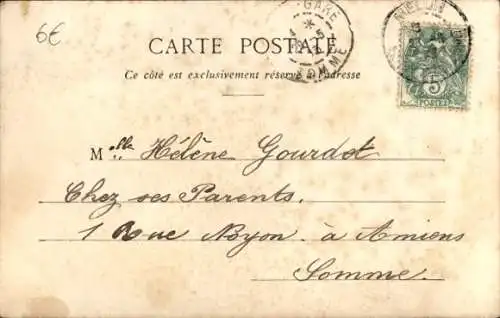 6€
CARTE POSTALE
Ce côté est exclusivement réservé à l'adresse
GARE
SOMME
5
POSTES
Melle Hélène Gourdet
Chez ses Parents.
1 Rue Noyon. à Amiens
Somme.